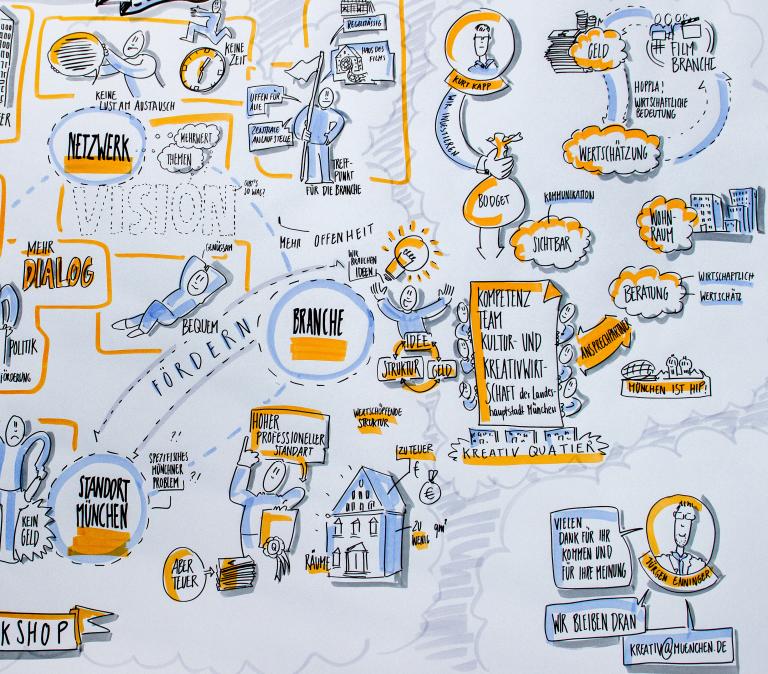 KEINE
LUST AM AUSTAUSCH
KEINE
ZEIT
NETZWERK
MEHRWERT
THEMEN
VISION
MEHR
DIALOG
POLITIK
BEQUEM
REGELMÄSSIG
HAUS DES
FILMS
OFFEN FÜR
ALLE
ZENTRALE
ANLAUFSTELLE
TREFF-
PUNKT
FÜR DIE BRANCHE
MEHR OFFENHEIT
WIR
BRAUCHEN
IDEEN
FÖRDERN
BRANCHE
IDEE
STRUKTUR
GELD
KURT KAPP
WIR INVESTIEREN
BUDGET
GELD
FILM
BRANCHE
HOPPLA!
WIRTSCHAFTLICHE
BEDEUTUNG
WERTSCHÄTZUNG
KOMMUNIKATION
SICHTBAR
WOHN-
RAUM
BERATUNG
WIRTSCHAFTLICH
WERTSCHÄTZ
KOMPETENZ
TEAM
KULTUR- UND
KREATIVWIRT-
SCHAFT der Landes-
hauptstadt München
ANSPRECHPARTNER
MÜNCHEN IST HIP!
KREATIV QUATIER
KEIN
GELD
STANDORT
MÜNCHEN
?!
SPEZIFISCHES
MÜNCHNER
PROBLEM
?!
HOHER
PROFESSIONELLER
STANDART
WERTSCHÖPFENDE
STRUKTUR
ABER
TEUER
RÄUME
ZU TEUER
€
€
ZU
WENIG
qm
KSHOP
VIELEN
DANK FÜR IHR
KOMMEN UND
FÜR IHRE MEINUNG
JÜRGEN ENNINGER
WIR BLEIBEN DRAN
KREATIV@MUENCHEN.DE